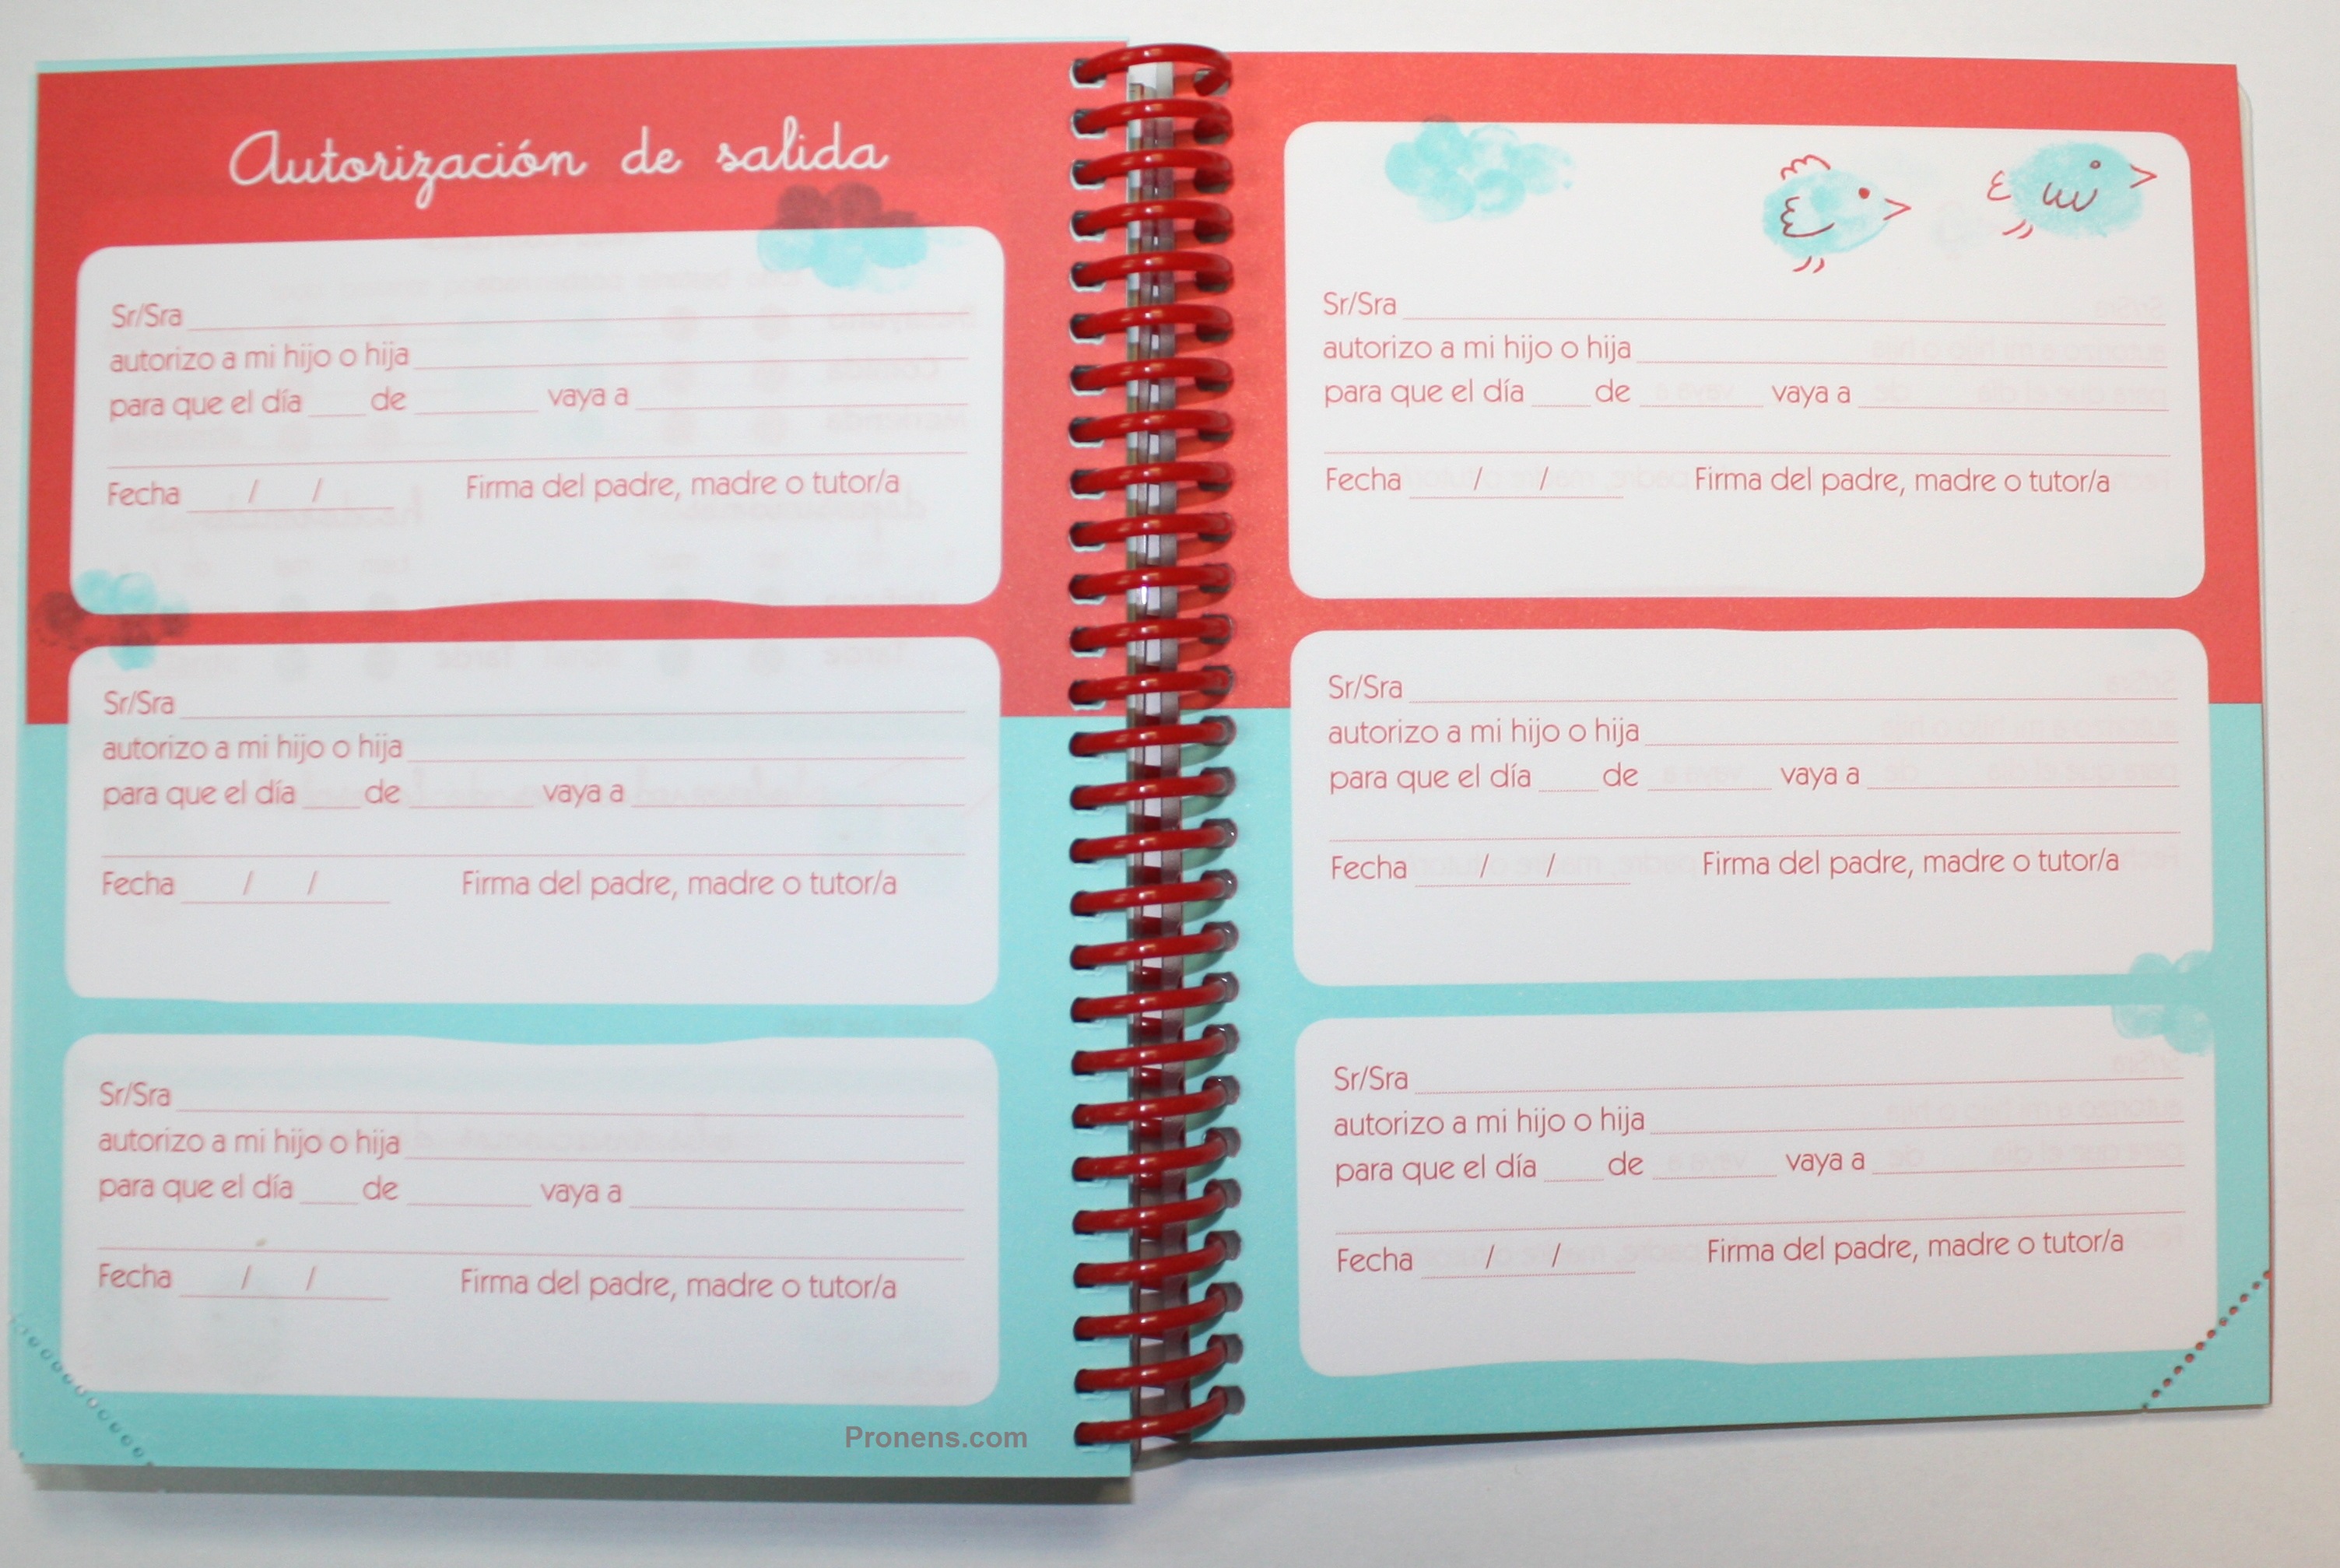 Autorización de salida
Sr/Sra
autorizo a mi hijo o hija
para que el día ____ de ________ vaya a
Fecha / / Firma del padre, madre o tutor/a
Sr/Sra
autorizo a mi hijo o hija
para que el día ____ de ________ vaya a
Fecha / / Firma del padre, madre o tutor/a
Sr/Sra
autorizo a mi hijo o hija
para que el día ____ de ________ vaya a
Fecha / / Firma del padre, madre o tutor/a
Pronens.com
Sr/Sra
autorizo a mi hijo o hija
para que el día ____ de ________ vaya a
Fecha / / Firma del padre, madre o tutor/a
Sr/Sra
autorizo a mi hijo o hija
para que el día ____ de ________ vaya a
Fecha / / Firma del padre, madre o tutor/a
Sr/Sra
autorizo a mi hijo o hija
para que el día ____ de ________ vaya a
Fecha / / Firma del padre, madre o tutor/a